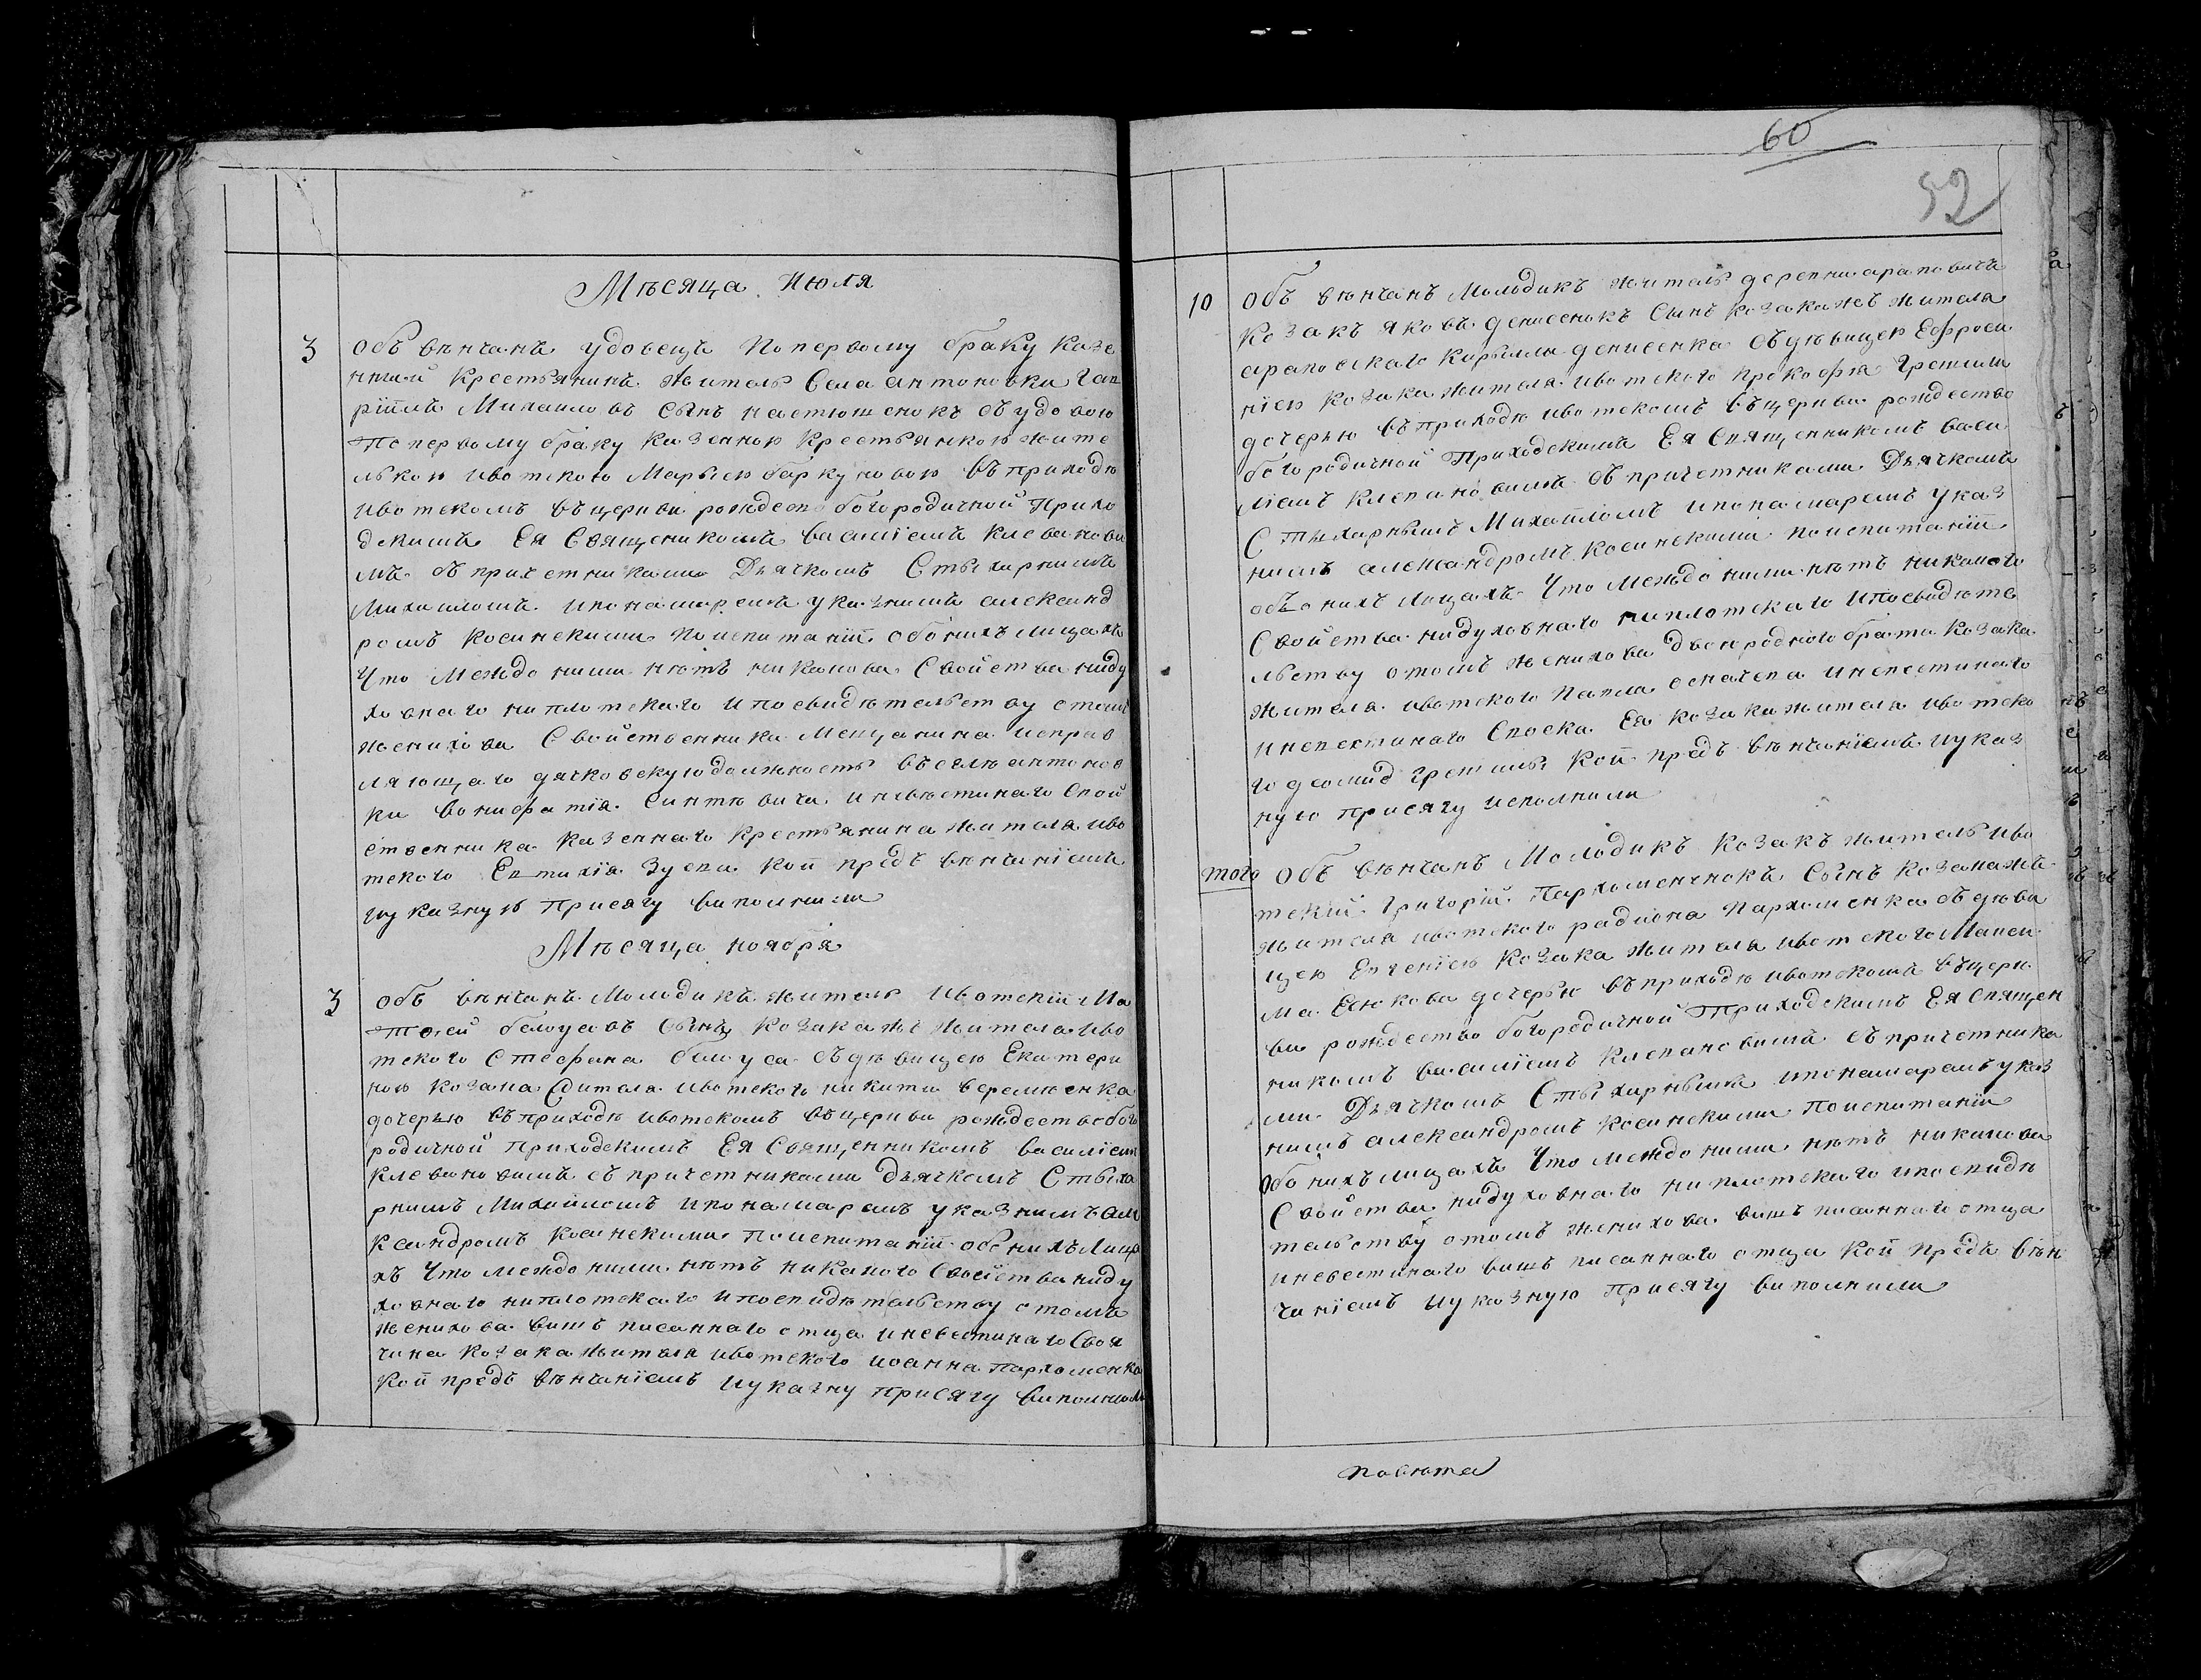 Мѣсяца Июля
3 объ вѣнчанъ удовецъ По первому браку казе
нный Крестьянинъ житель Села антоновки Гав
рiилъ Михаиловъ Сынъ съ удовою
По первому браку казенною Крестьянкою жите
лькою ивотского Марьею беркуновою въ приходѣ
ивотскомъ въ церкви рождество богородичной Прихо
дскимъ Ея Священикомъ василiемъ Клеванови
мъ съ причетниками Дьячкомъ Стыхарнимъ
Михаиломъ и понамаремъ указнимъ александ
ромъ косинскими По испитанiи обоихъ лицахъ
Что Междо ними нѣтъ никакова Свойства ниду
ховнаго ни плотскаго И по свидѣтельству отомъ
женихова Свойственника Мещанина исправ
ляющаго дячковскую должность въ селѣ антонов
ки вонифатiя и невѣстинаго Свой
ственника казеннаго Крестьянина жителя иво
тского Евтихiя Зуева кои предъ вѣнчанiемъ
и указную Присягу виполнили
Мѣсяца ноября
3 объ вѣнчанъ Молодикъ житель Ивотскiи Ма
тθей белоусовъ Сынъ козака жъ жителя иво
тского Стефана белоуса съ дѣвицею Екатери
ною козака жителя ивотского никити веремѣенка
дочерью въ приходѣ ивотскомъ въ церкви рождество бого
родичной приходскимъ Ея Священникомъ василiемъ
Клевановимъ съ причетниками дьячкомъ Стыха
рнимъ Михаиломъ и понамаремъ указнимъ але
ксандромъ косинскими По испитанiи обоихъ лица
хъ Что междо ними нѣтъ никакого Свойства ниду
ховнаго ни плотскаго и по свидѣтельству отомъ
женихова вишъ писаннаго отца и невестинаго Своя
чина козака жителя ивотского иоанна пархоменка
Кои предъ вѣнчанiемъ и указну присягу виполнили
60
52
10 объ вѣнчанъ Молодикъ житель деревни араповичъ
козакъ яковъ денисенокъ Сынъ козака жъ жителя
араповскаго Кирылли денисенка съ дѣвицею Ефроси
нiею козака жителя ивотского прокофiя
дочерью въ приходѣ ивотскомъ въ церкви рождество
богородичной Приходскимъ Ея Священникомъ васи
лiемъ клевановимъ съ причетниками Дьячкомъ
Стыхарнымъ Михаiломъ и понамаремъ указ
нимъ александромъ косинскими по испитанiи
обоихъ лицахъ Что Междо ними нѣтъ никакого
Свойства ни духовнаго ни плотскаго И по свидѣте
льству отомъ женихова двоюродного брата козака
жителя ивотского павла и невестинаго
и невестинаго Ея козака жителя ивотско
го кои предъ вѣнчанiемъ и указ
ную присягу исполнили
того объ вѣнчанъ Молодикъ козакъ житель иво
тскiй Григорiй Пархоменчнокъ Сынъ козака жъ
жителя ивотского радиона пархоменка съ дѣви
цею Евгенiею козака жителя ивотского Макси
ма Сюкова дочерью въ приходѣ ивотскомъ въ церк
ви рождество богородичной Приходскимъ Ея Священ
никомъ василiемъ клевановимъ съ причетника
ми Дьячкомъ Стыхарнымъ и понамаремъ указ
нимъ александромъ косинскими по испитанiи
обоихъ лицахъ Что междо ними нѣтъ никакова
Свойства ни духовнаго ни плотскаго и по свидѣ
тельству отомъ женихова вишъ писаннаго отца
и невестинаго вишъ писаннаго отца кои предъ вѣн
чанiемъ и указную Присягу виполнили
повѣта